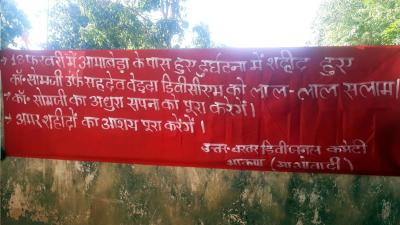 → 18 फरवरी में आमाबेड़ा के पास हुए दुर्घटना में शहीद हुए
कॉ. सोमजी उर्फ सहदेव वेड़दा डिवीसीएम को लाल-लाल सलाम।
→ कॉ. सोमजी का अधुरा सपना को पुरा करेंगे।
→ अमर शहीदों का आशय पूरा करेंगे।
उत्तर बस्तर डिवीजनल कमेटी
भाकपा (माओवादी)